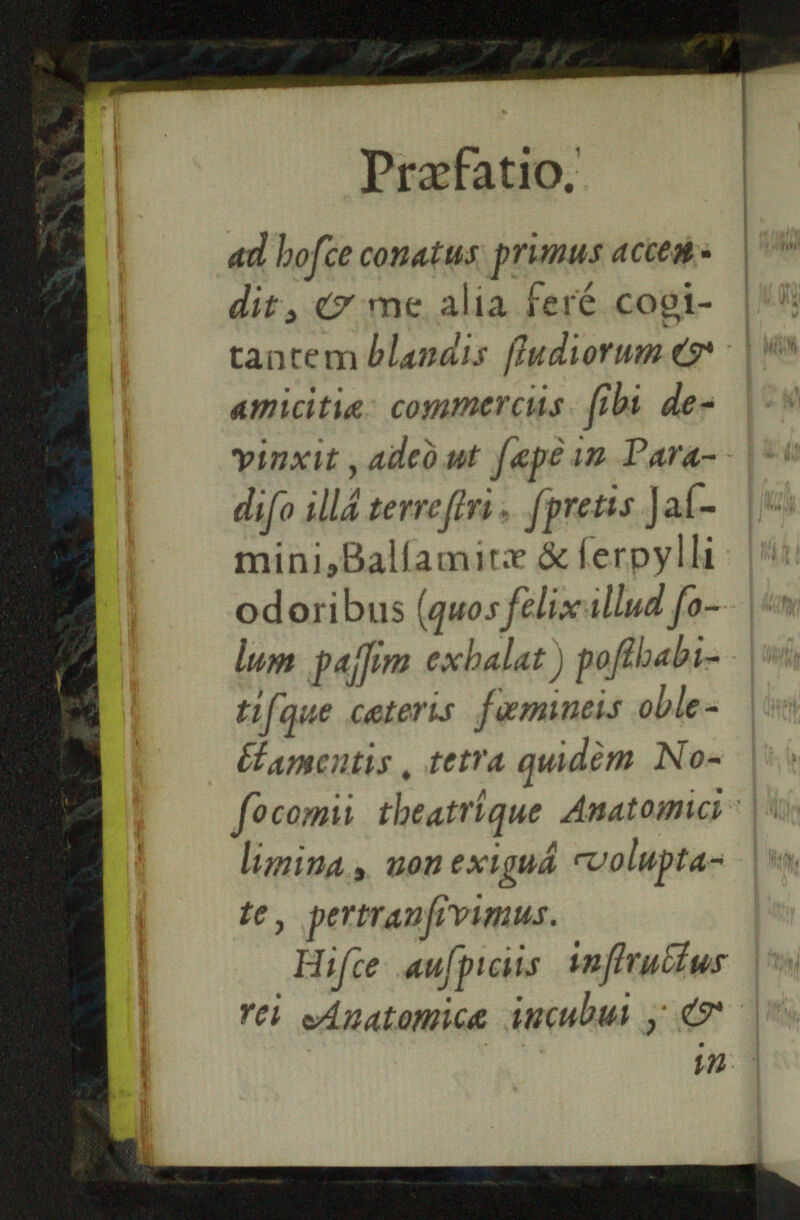 Præfatio.
ad hoſce conatus primus accen-
dit, & me alia feré cogi-
tantem blandis ſtudiorum &
amicitiæ commerciis ſibi de-
vinxit, adeò ut ſæpè in Para-
diſo illâ terreſtri, ſpretis Jaſ-
mini, Balſamitæ & ſerpylli
odoribus (quos felix illud ſo-
lum paſſim exhalat) poſthabi-
tíſque cæteris fœmineis oble-
ctamentis, tetra quidèm No-
ſocomii theatrîque Anatomici
limina, non exiguâ volupta-
te, pertranſivimus.
Hiſce auſpiciis inſtructus
rei Anatomicæ incubui, &
in